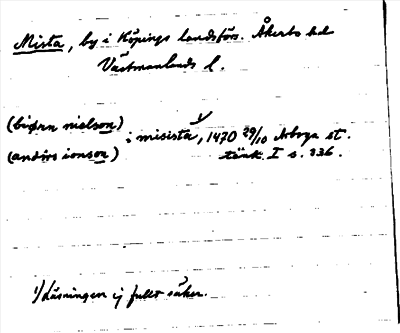 Mista, by i Köpings landsförs. Åkerbo hd
Västmanlands l.
(biørn nielson)
(andirs ionson)
; i misista, 1470 29/10 Arboga st.
tänk. I s. 336.
1) Läsningen ej fullt säker.